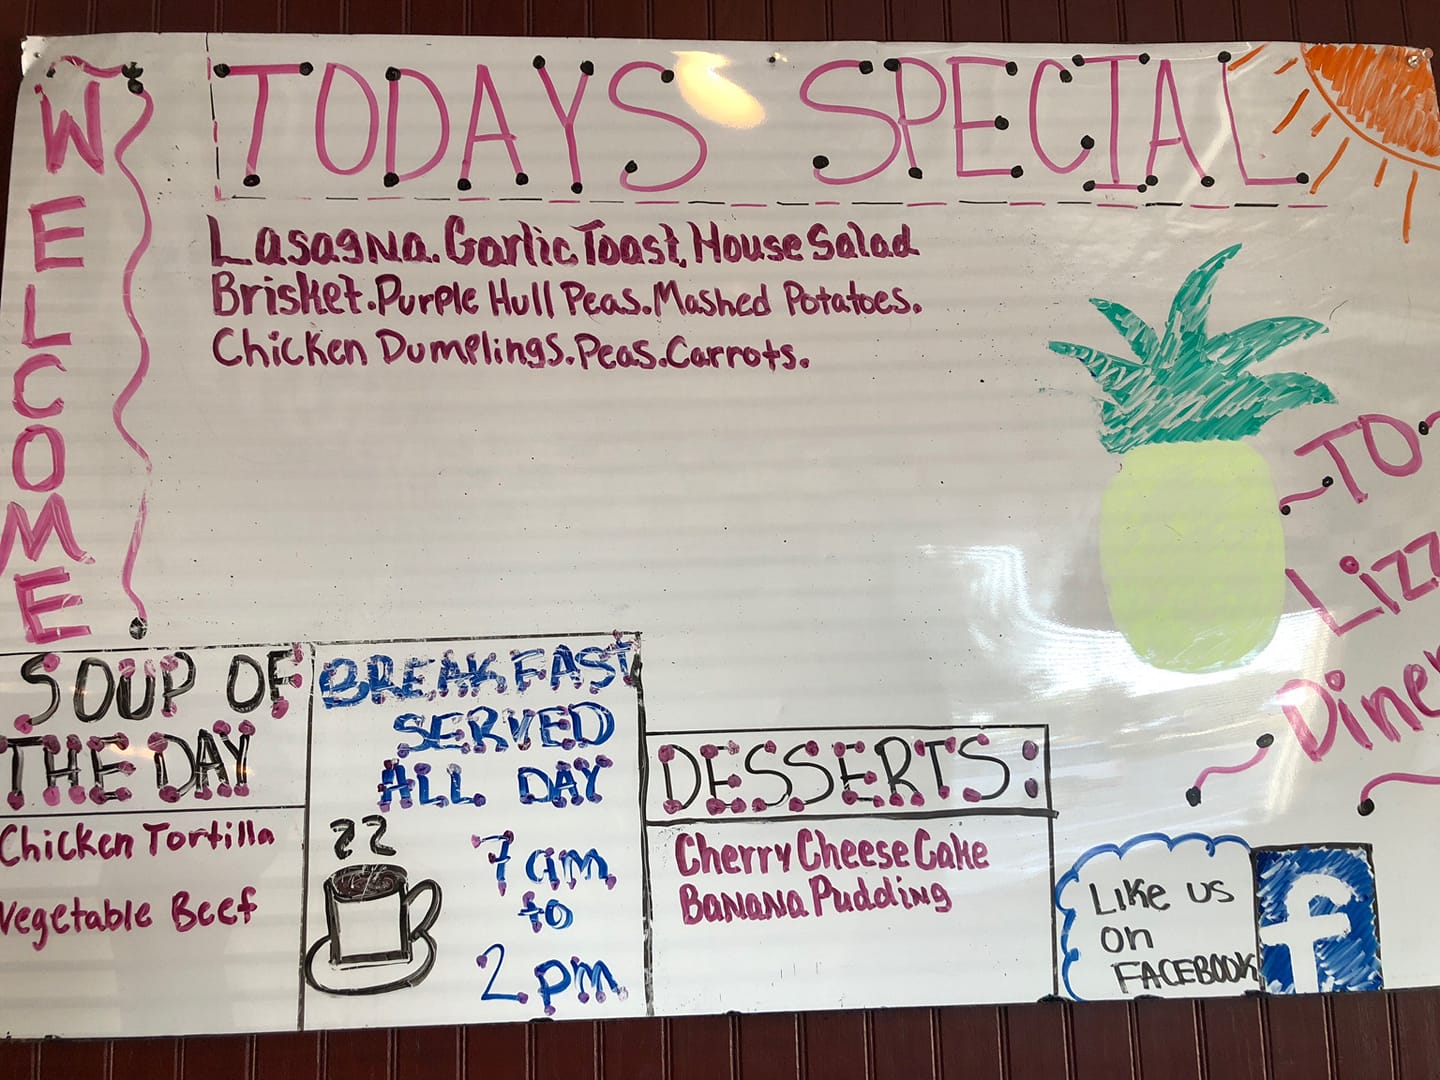 WELCOME
TODAYS SPECIAL
Lasagna. Garlic Toast, House Salad
Brisket. Purple Hull Peas. Mashed Potatoes.
Chicken Dumplings. Peas. Carrots.
TO
Lizz
Diner
SOUP OF
THE DAY
Chicken Tortilla
Vegetable Beef
BREAKFAST
SERVED
ALL DAY
7 am
to
2 pm
DESSERTS:
Cherry Cheese Cake
Banana Pudding
Like us
on
FACEBOOK
f